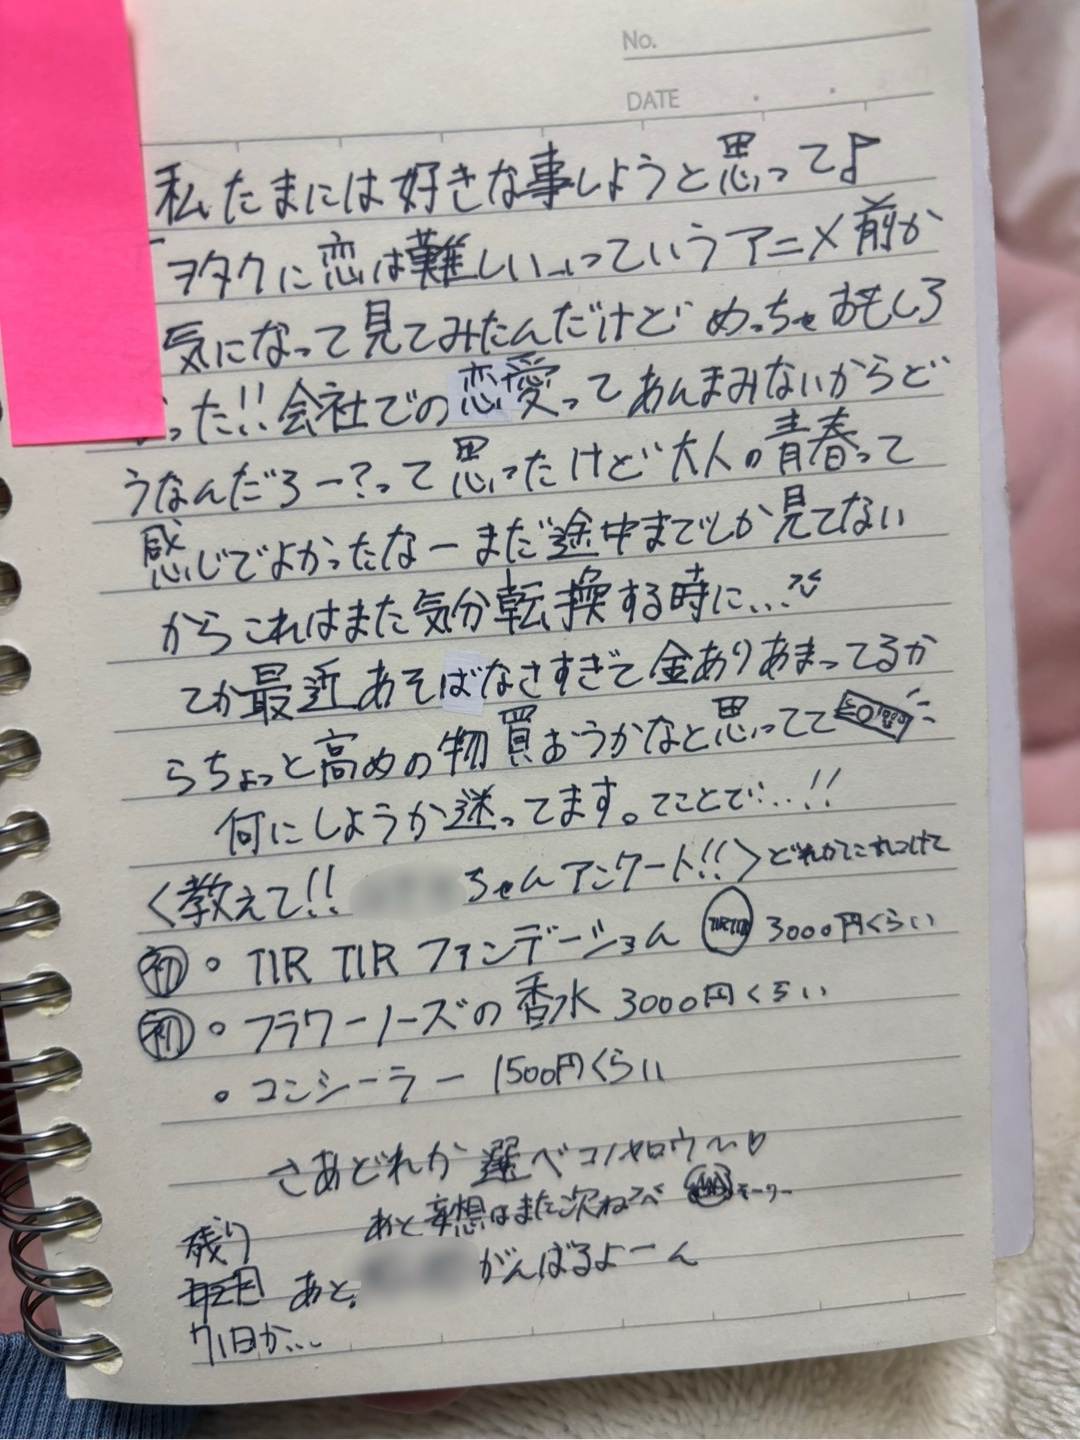 No.
DATE
私たまには好きな事しようと思って♪
「ヲタクに恋は難しい」っていうアニメ前か
気になって見てみたんだけどめっちゃおもしろ
った!!会社での恋愛ってあんまみないからど
うなんだろー?って思ったけど大人の青春って
感じでよかったなーまだ途中までしか見てない
からこれはまた気分転換する時に...
てか最近あそばなさすぎて金ありあまってるか
らちょっと高めの物買おうかなと思ってて
何にしようか迷ってます。てことで...!!
〈教えて!! ちゃんアンケート!!〉どれかに
初 ・TIR TIR ファンデーション TIRTIR 3000円くらい
初 ・フラワーノーズの香水 3000円くらい
・コンシーラー 1500円くらい
さあどれか選べコノヤロウ〜♡
あと妄想はまた次ねー
残り
あと がんばるよーん
71日か...